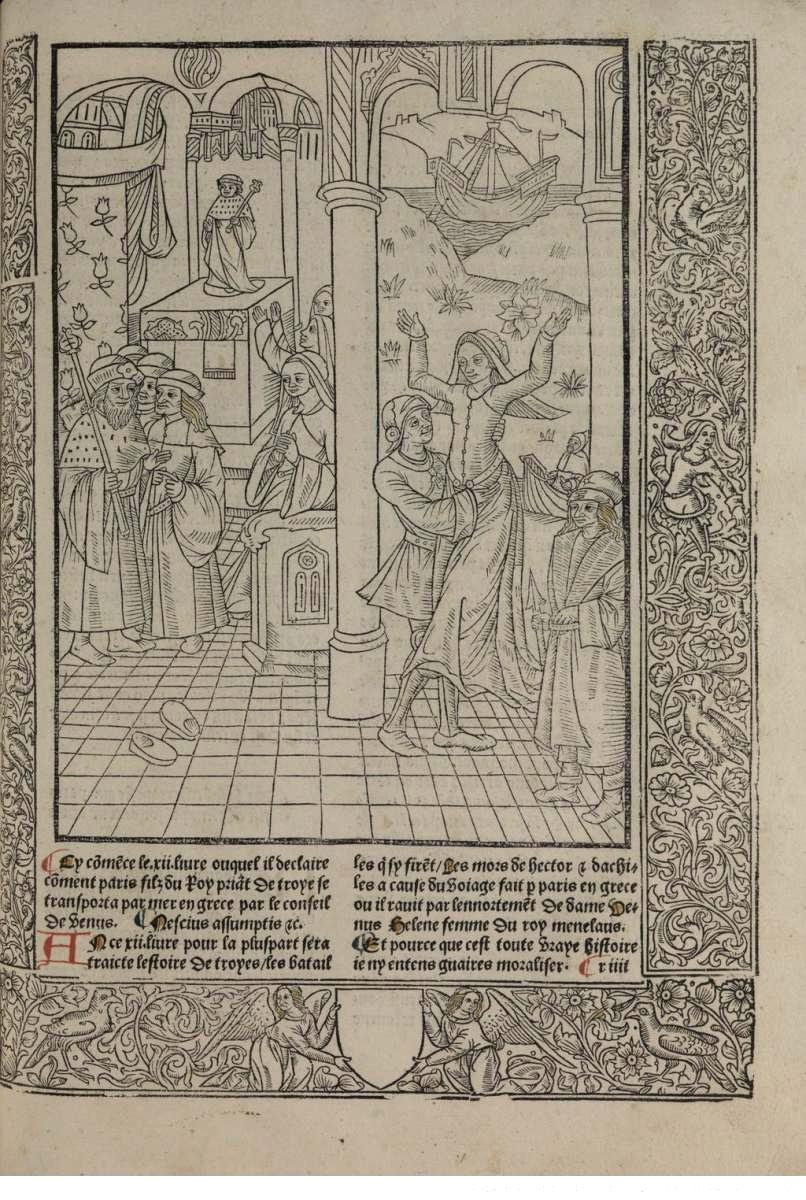 ¶ Cy cõmẽce le.xii.liure ouquel il declaire
cõment paris filz du Roy priãt de troye se
transporta par mer en grece par le conseil
de venus. ¶ Nescius assumptis ⁊c.
AN ce xii.liure pour la pluspart sera
traicte lestoire de troyes/les batail
les q̃ sy firẽt/Les mors de hector ⁊ dachi⸗
les a cause du voiage fait p paris en grece
ou il rauit par lennortemẽt de dame Ve⸗
nus Helene femme du roy menelaus.
¶ Et pource que cest toute vraye histoire
ie ny entens guaires moraliser. ¶ r iiii